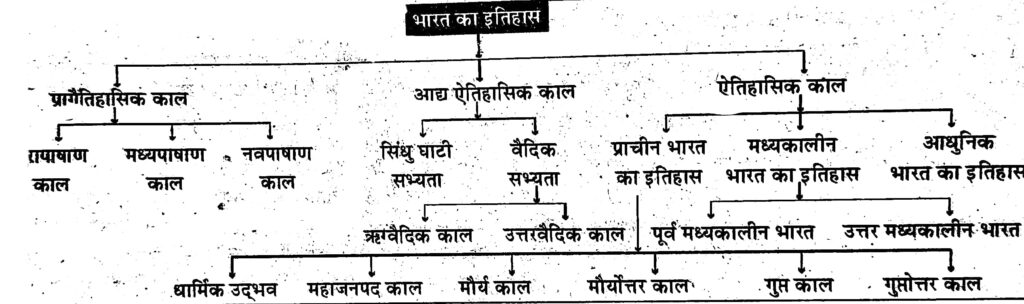 भारत का इतिहास
प्रागैतिहासिक काल
आद्य ऐतिहासिक काल
ऐतिहासिक काल
रापाषाण
काल
मध्यपाषाण
काल
नवपाषाण
काल
सिंधु घाटी
सभ्यता
वैदिक
सभ्यता
प्राचीन भारत
का इतिहास
मध्यकालीन
भारत का इतिहास
आधुनिक
भारत का इतिहास
ऋग्वैदिक काल
उत्तरवैदिक काल
पूर्व मध्यकालीन भारत
उत्तर मध्यकालीन भारत
धार्मिक उद्भव
महाजनपद काल
मौर्य काल
मौर्योत्तर काल
गुप्त काल
गुप्तोत्तर काल